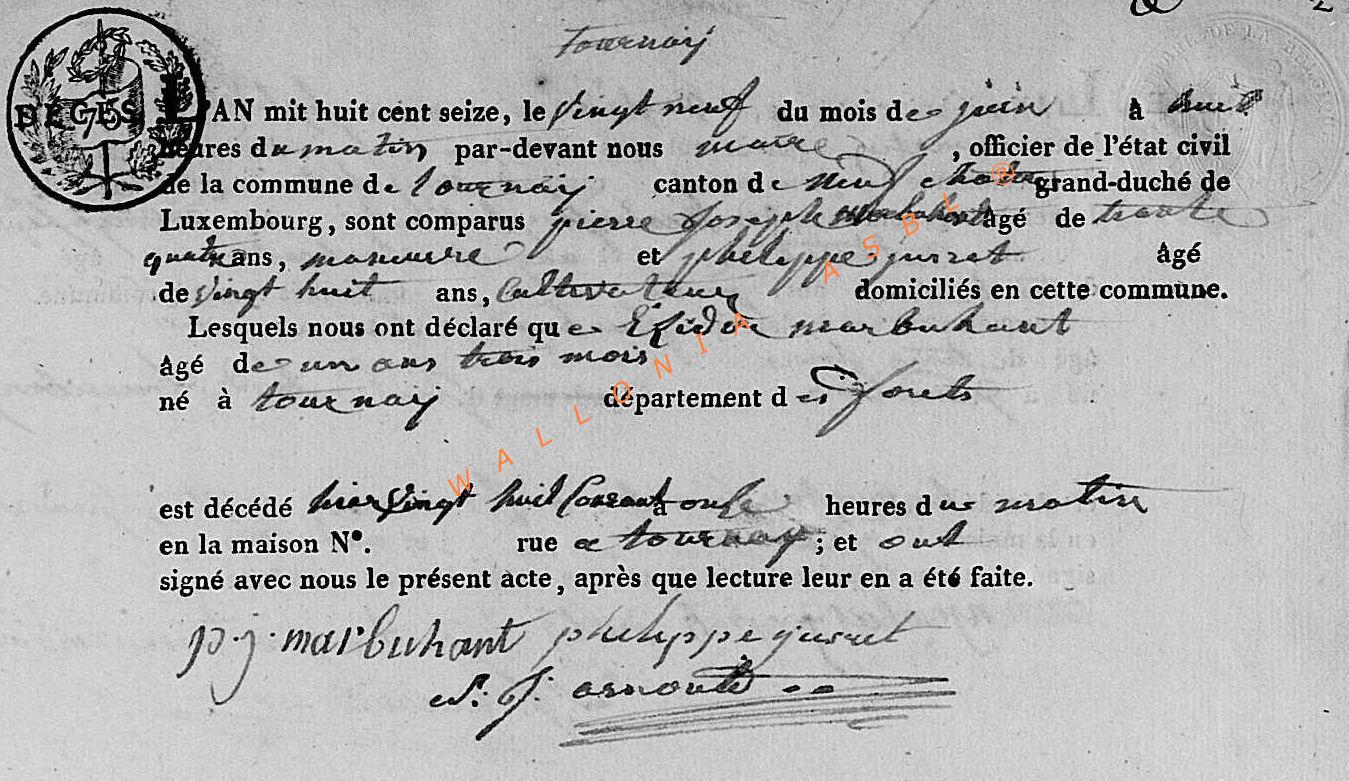 Tournay
DÉCÈS. 75 L'AN mit huit cent seize, le vingt neuf du mois de juin à huit
heures du matin par-devant nous maire, officier de l'état civil
de la commune de tournay canton de neuf chateau grand-duché de
Luxembourg, sont comparus pierre Joseph marbuhant âgé de trente
quatre ans, maneuvre et philippe jusret âgé
de vingt huit ans, Cultivateur domiciliés en cette commune.
Lesquels nous ont déclaré que marbuhant
âgé de un ans trois mois
né à tournay département des forets
est décédé hier vingt huit Courant à onse heures du matin
en la maison N°. rue a tournay; et ont
signé avec nous le présent acte, après que lecture leur en a été faite.
p. j. marbuhant philippe jusret
j. arnould
WALLONIA ASBL ®